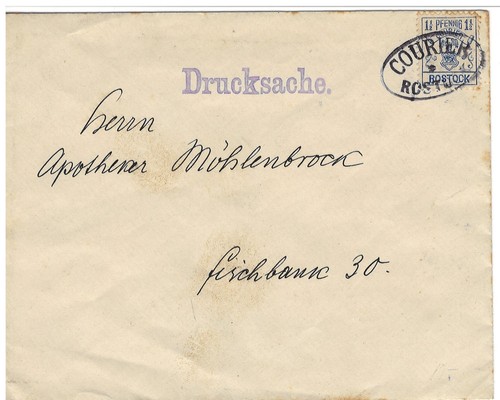 1½ PFENNIG 1½
COURIER
ROSTOCK
Drucksache.
Herrn
Apotheker Möhlenbrock
Fischbank 30.